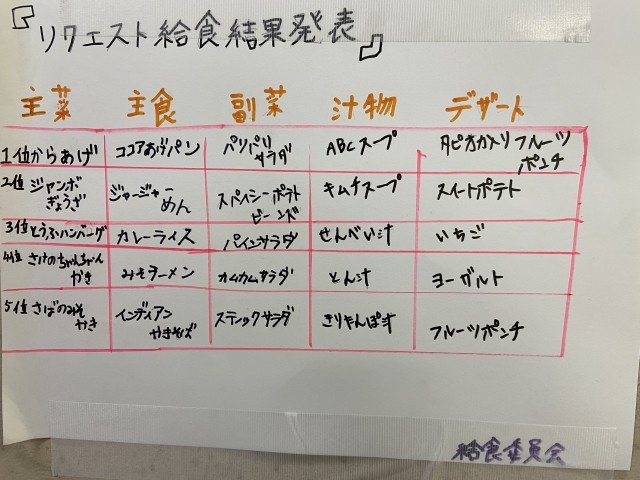 『リクエスト給食結果発表』
主菜 主食 副菜 汁物 デザート
1位からあげ ココアあげパン パリパリサラダ ABCスープ タピオカ入りフルーツポンチ
2位 ジャンボぎょうざ ジャージャーめん スパイシーポテトビーンズ キムチスープ スイートポテト
3位とうふハンバーグ カレーライス パインサラダ せんべい汁 いちご
4位 さけのちゃんちゃんかき みそラーメン カムカムサラダ とん汁 ヨーグルト
5位 さばのみそかき インディアンやきそば スティックサラダ きりたんぽ汁 フルーツポンチ
給食委員会